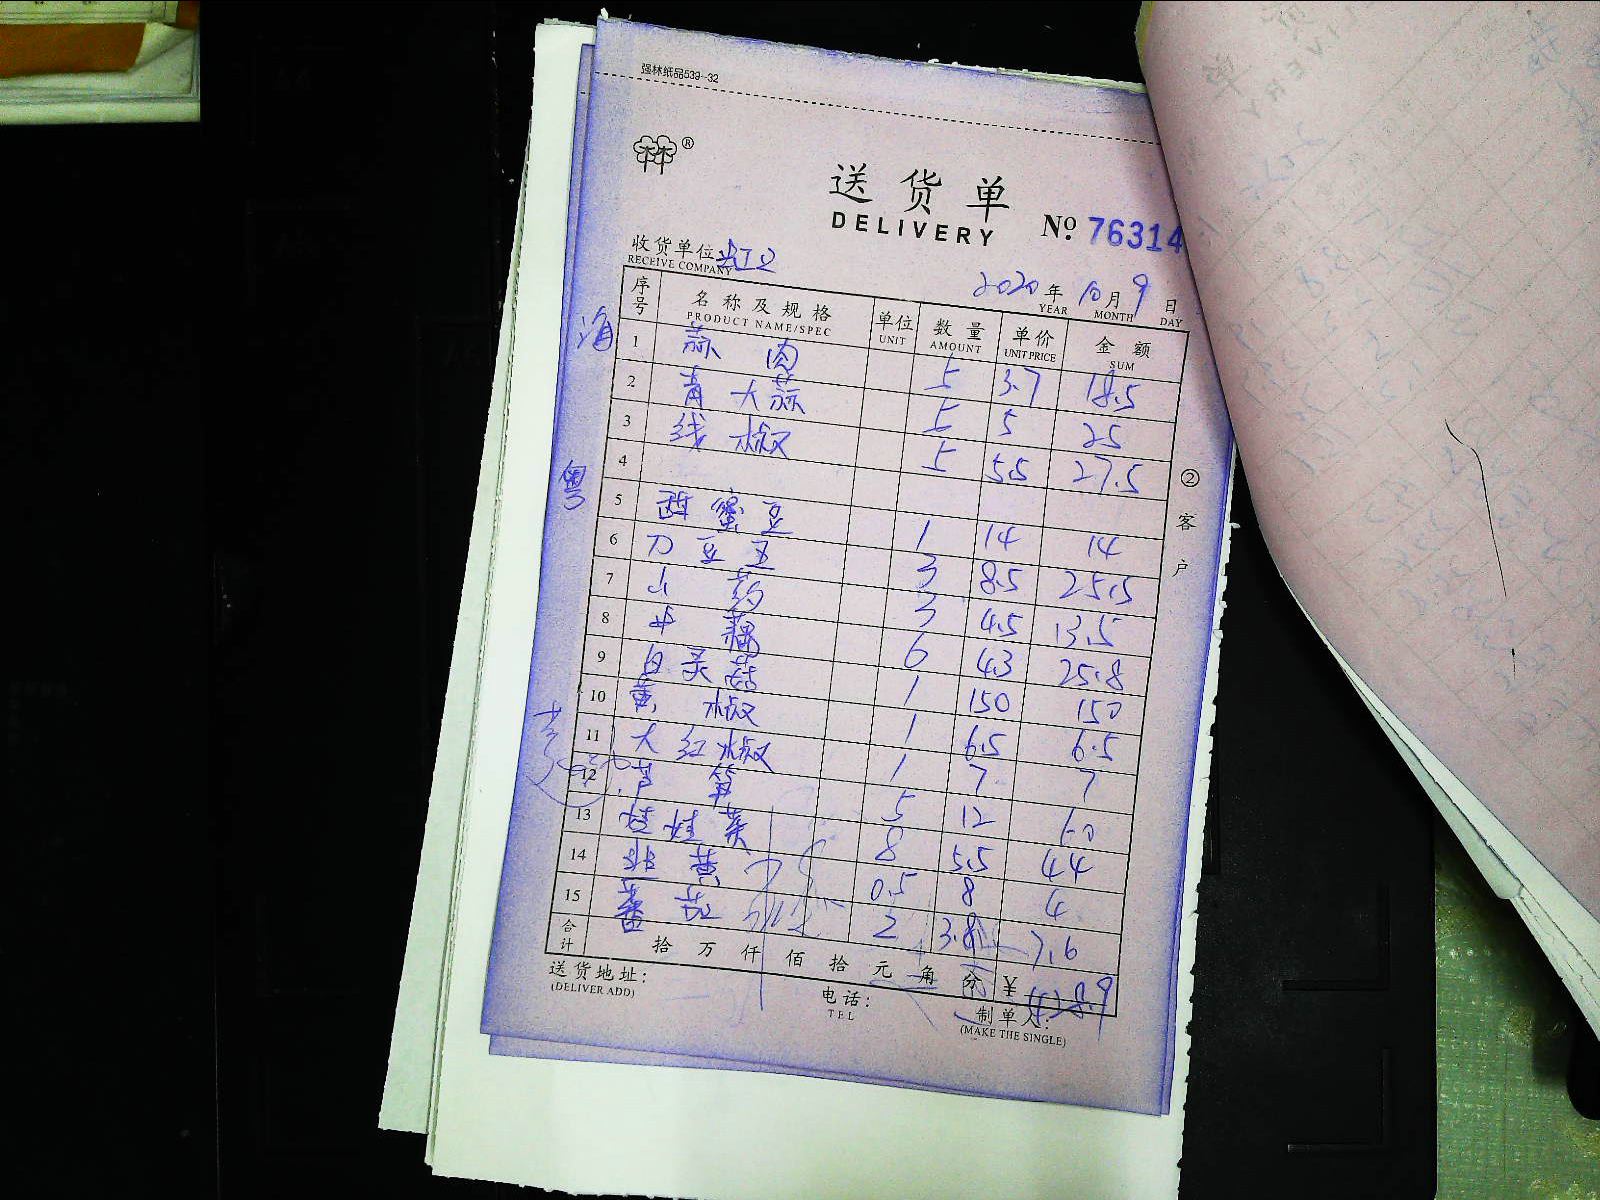 强林纸品539-32
送货单
DELIVERY
№ 76314
收货单位
RECEIVE COMPANY
2020年10月9日
YEAR MONTH DAY
序号 名称及规格 单位 数量 单价 金额
PRODUCT NAME/SPEC UNIT AMOUNT UNIT PRICE SUM
海
1 蒜肉 5 3.7 18.5
2 青大蒜 5 5 25
3 线椒 5 5.5 27.5
4
粤
5 甜蜜豆 1 14 14
6 刀豆 3 8.5 25.5
7 山药 3 4.5 13.5
8 藕 6 4.3 25.8
9 白灵菇 1 150 150
10 黄椒 1 6.5 6.5
11 大红椒 1 7 7
12 芦笋 5 12 60
13 娃娃菜 8 5.5 44
14 韭黄 0.5 8 4
15 番茄 2 3.8 7.6
合计 拾万仟佰拾元角分 ¥ 428.9
送货地址:
(DELIVER ADD)
电话:
TEL
制单人:
(MAKE THE SINGLE)
②客户